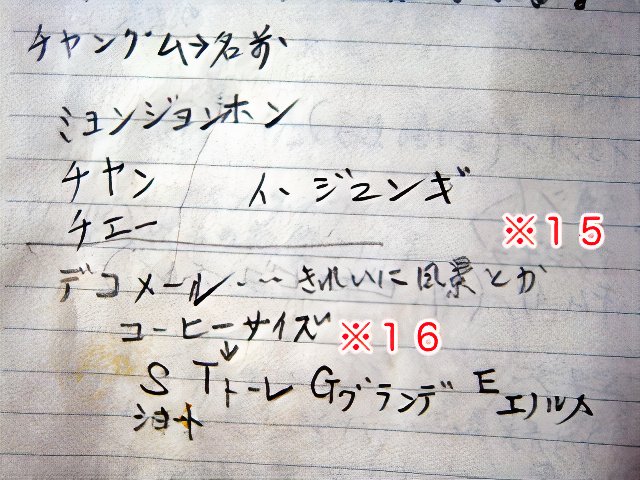 チャングム→名前
ミョンジョンホン
チヤン イ、ジョンギ
チエー
※15
デコメール・・・きれいに風景とか
コーヒーサイズ ※16
↓
S Tトーレ Gグランデ E エノルメ
ショート